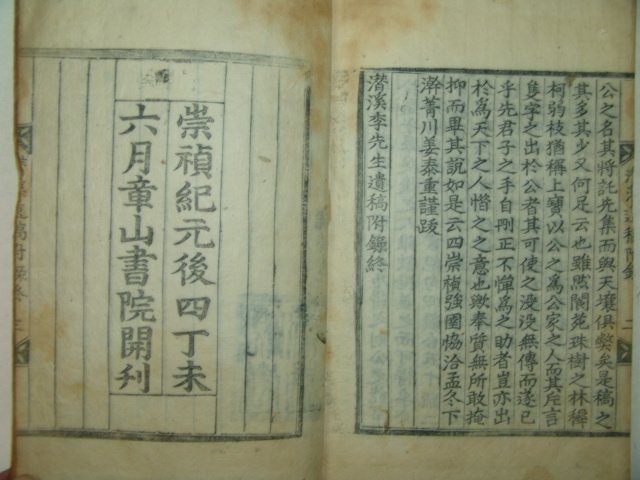 公之名其將託先集而與天壤俱獘矣是稿之
其多其少又何足云也雖然閬苑珠樹之林穉
柯弱枝猶稱上寶以公之爲公家之人而其片言
隻字之出於公者其可使之浸浸無傳而遂已
乎先君子之手自剛正不憚爲之助者豈亦出
於爲天下之人惜之之意也歟奉管無所敢掩
抑而畢其說如是云四崇禎強圉恊洽孟冬下
澣菁川姜泰重謹跋
潛溪李先生遺稿附錄終
崇禎紀元後四丁未
六月章山書院開刊
遺稿附錄終